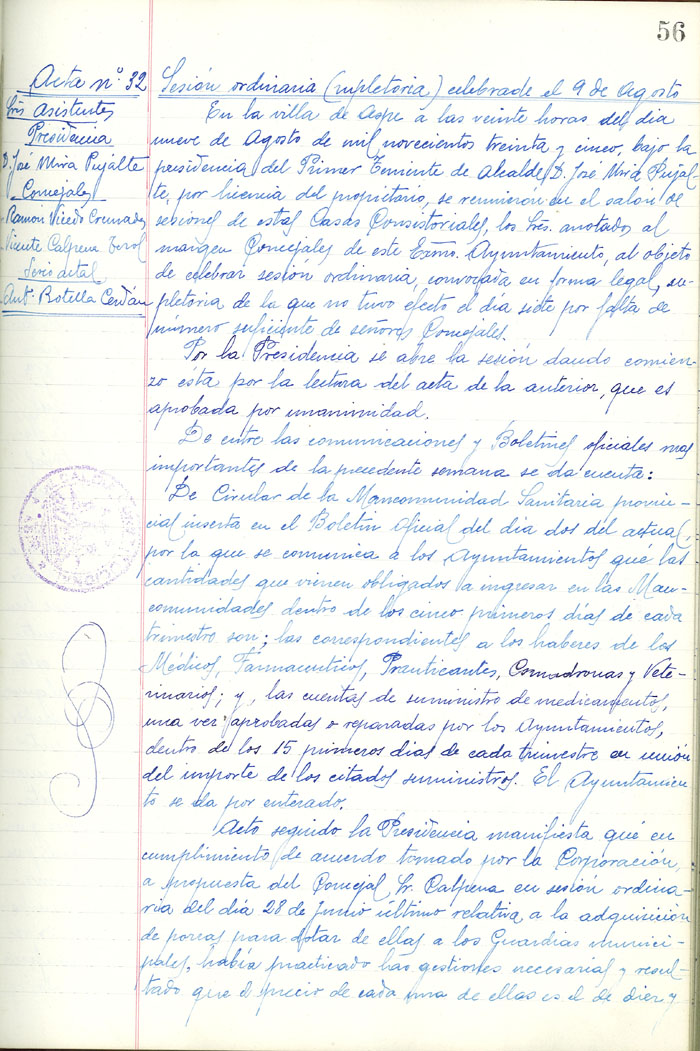 56
Acta nº 32
Sres Asistentes
Presidencia
D. José Mira Pujalte
Concejales
Ramon Vicedo Cremades
Vicente Calpena Terol
Secretal
Antº Botella Cerdán
Sesión ordinaria (supletoria) celebrada el 9 de Agosto
En la villa de Aspe a las veinte horas del dia
nueve de Agosto de mil novecientos treinta y cinco, bajo la
presidencia del Primer Teniente de Alcalde, D. José Mira Pujal-
te, por licencia del propietario, se reunieron en el salón de
sesiones de estas Casas Consistoriales, los Sres. anotados al
margen Concejales de este Excmo. Ayuntamiento, al objeto
de celebrar sesión ordinaria, convocada en forma legal, su-
pletoria de la que no tuvo efecto el dia siete por falta de
número suficiente de señores Concejales.
Por la Presidencia se abre la sesión dando comien-
zo ésta por la lectura del acta de la anterior, que es
aprobada por unanimidad.
De entre las comunicaciones y Boletines oficiales mas
importantes de la precedente semana se da cuenta:
De Circular de la Mancomunidad Sanitaria provin-
cial inserta en el Boletin Oficial del dia dos del actual,
por la que se comunica a los Ayuntamientos que las
cantidades que vienen obligados a ingresar en las Man-
comunidades dentro de los cinco primeros días de cada
trimestre son; las correspondientes a los haberes de los
Médicos, Farmaceuticos, Practicantes, Comadronas y Vete-
rinarios; y, las cuentas de suministro de medicamentos,
una vez aprobadas o reparadas por los Ayuntamientos,
dentro de los 15 primeros dias de cada trimestre en unión
del importe de los citados suministros. El Ayuntamien
to se da por enterado.
Acto seguido la Presidencia manifiesta que en
cumplimiento de acuerdo tomado por la Corporación,
a propuesta del Concejal Sr. Calpena en sesión ordina-
ria del día 28 de Junio último relativa a la adquisición
de porras para dotar de ellas a los Guardias munici-
pales, había practicado las gestiones necesarias y resul-
tado que el precio de cada una de ellas es el de diez y